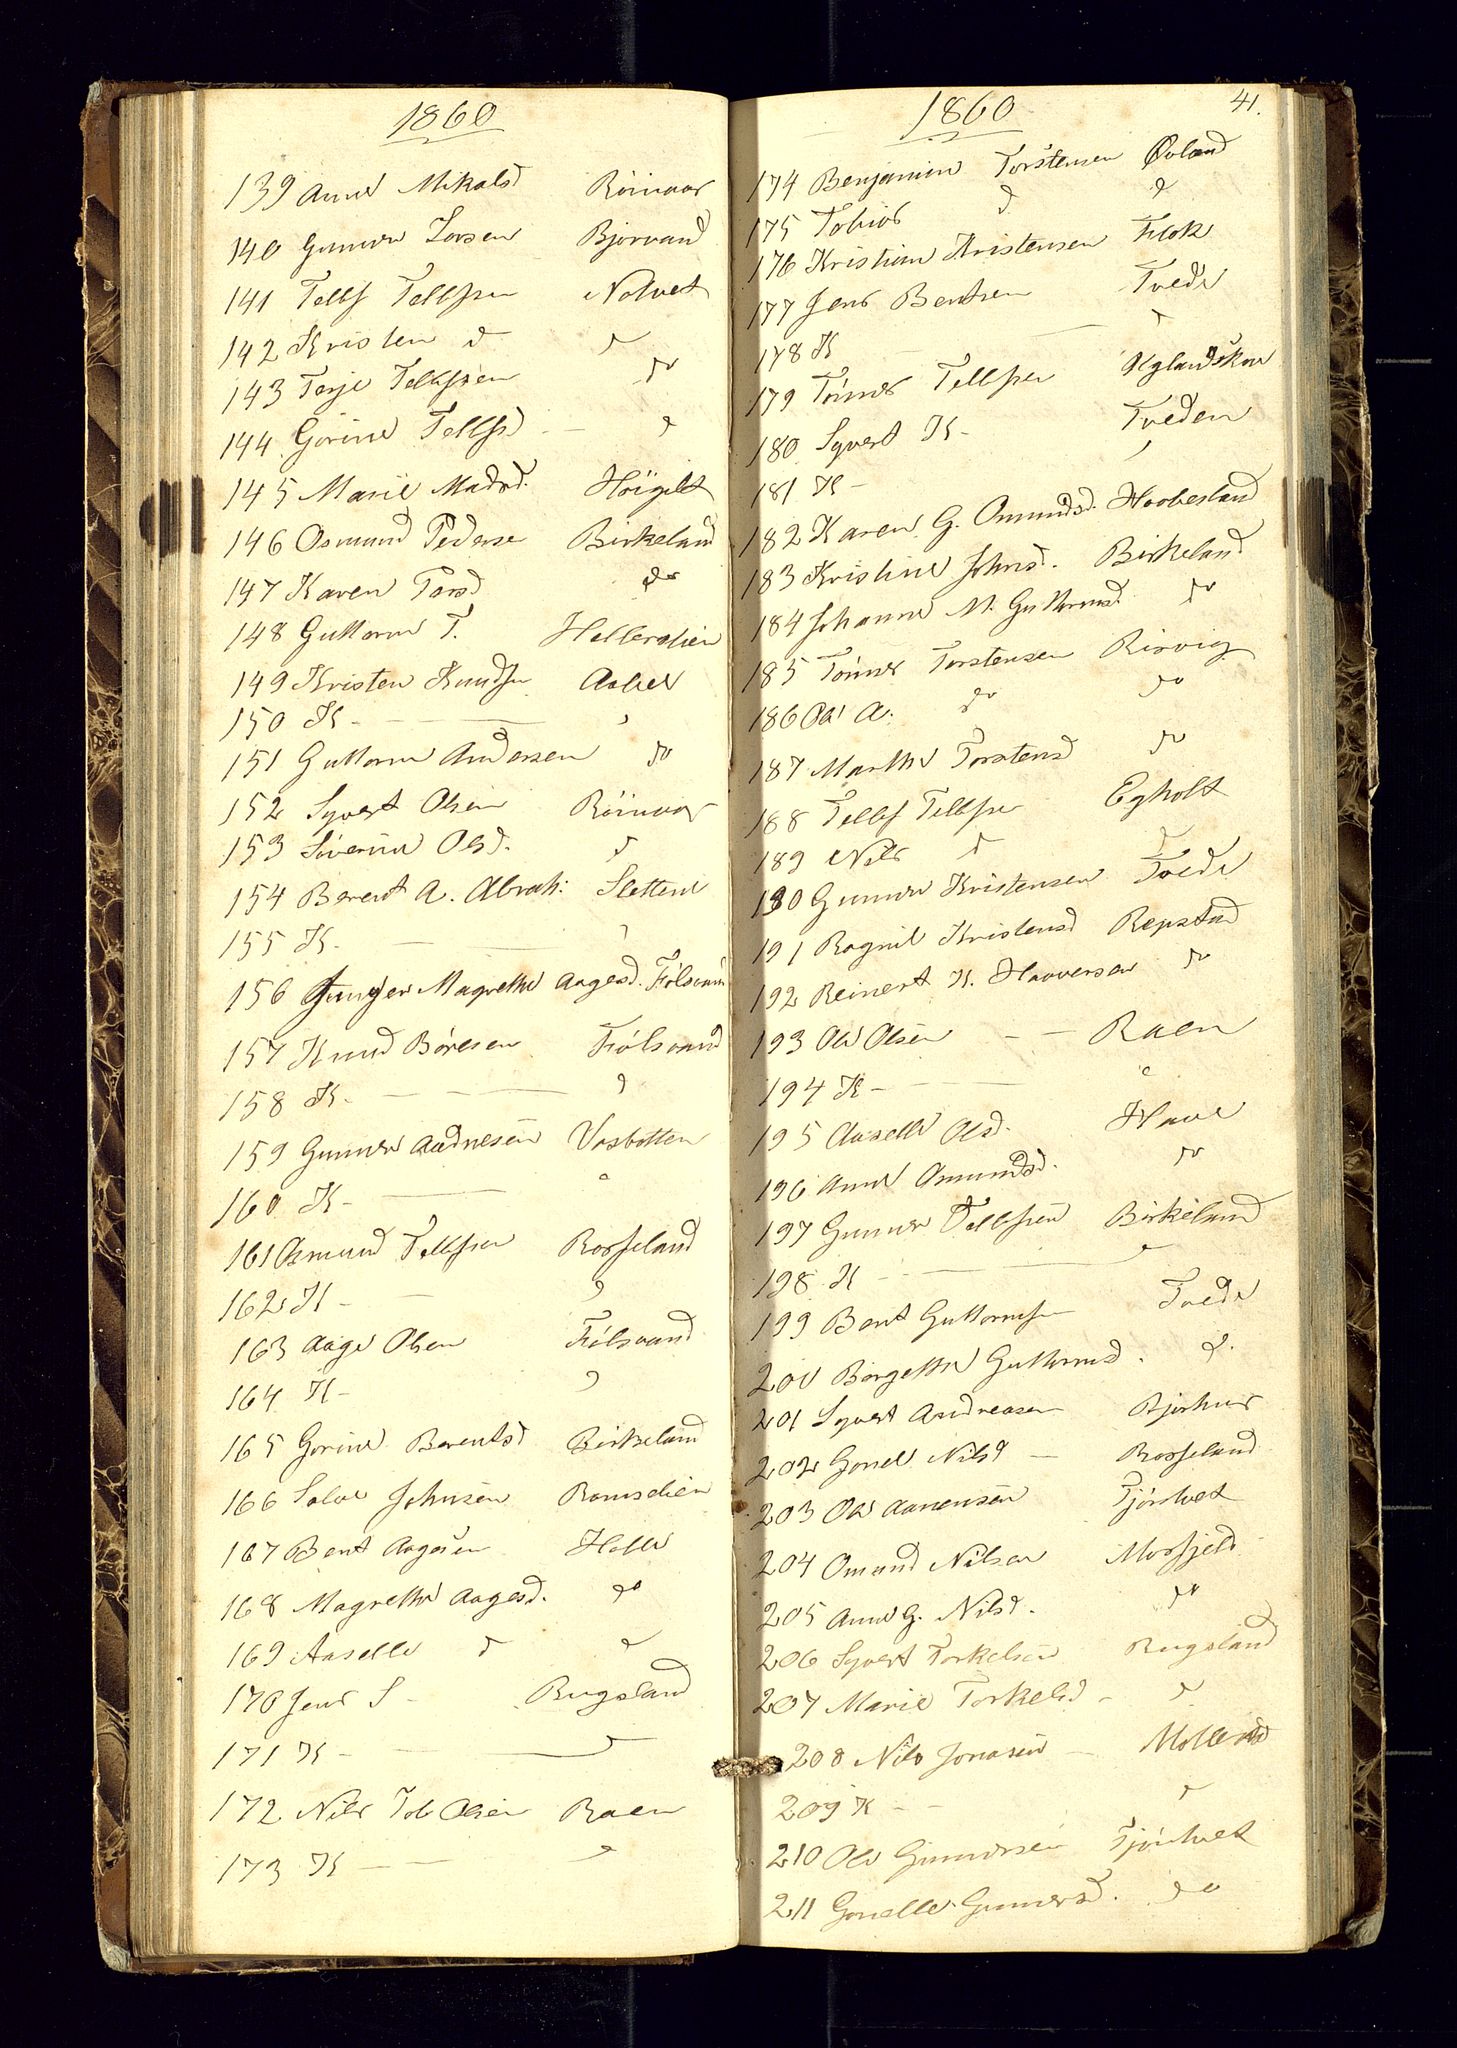 1860
139 Anne Mikalsd Röinaas
140 Gunner Larsen Bjorvand
141 Tellf Tellfsen Nolvet
142 Kristen d d
143 Terje Tellfsen do
144 Gorine Tellfsd d
145 Marie Madsd. Höigilt
146 Osmund Pederse Birkeland
147 Karen Tarsd do
148 Guttorm T. Hellerslien
149 Kristen Knudsn Aabel
150 K - — — "
151 Guttorm Andersen do
152 Syvert Olsen Röinaas
153 Severine Olsd. d
154 Berent A. Abrah: Slettene
155 K. — — "
156 Magrethe Aagesd. Fölsvan
157 Knud Böresen Fölsvand
158 K. — — "
159 Gunner Aadnesen Vasbotten
160 K - — "
161 Osmund Tellfsen Rosseland
162 K - — "
163 Aage Olsen Fölsvand
164 K - "
165 Gorine Berentsd Birkeland
166 Salve Johnsen Ramselien
167 Bent Aagesen Halle
168 Magrethe Aagesd. do
169 Aaselle d d
170 Jens S - Rugsland
171 K - — d
172 Nils Tob Olsen Raen
173 K - — "
1860 41.
174 Benjamin Torstensen Øvland
175 Tobias d d
176 Kristian Kristensen Flok
177 Jens Bentsen Tvede
178 K — d
179 Tönnes Tellfsen Uglandskov
180 Syvert K - Tveden
181 K - "
182 Karen G. Omundsd. Haabesland
183 Kristine Johnsd. Birkeland
184 Johanne M. Guttormsd. do
185 Tönnes Torstensen Risvig
186 Ole A. do do
187 Marthe Torstensd do
188 Tellf Tellfsen Egholt
189 Nils d d
190 Gunner Kristensen Tvede
191 Ragnil Kristensd Repstad
192 Reinert K. Haaversen do
193 Ole Olsen — Raen
194 K - — "
195 Aaselle Olsd. Have
196 Anne Omundsd. do
197 Gunner Tellfsen Birkeland
198 K — "
199 Bent Guttormsn Tvede
200 Börgette Guttormsd. d.
201 Syvert Andreasen Bjorhus
202 Gonel Nilsd — Rosseland
203 Ole Aanensen Tjönhvet
204 Omund Nilsen Mosfjeld
205 Anne G. Nilsd. do
206 Syvert Torkelsen Rugsland
207 Marie Torkelsd - d
208 Nils Jonasen — Mollerud
209 K - - d
210 Ole Gunnersen Tjönhvet
211 Gonelle Gunnersd. do